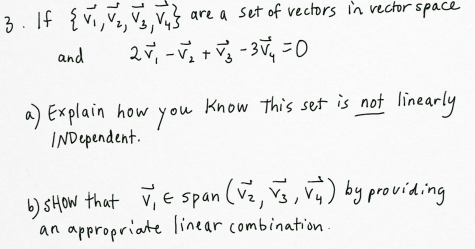 3. If {v⃗₁, v⃗₂, v⃗₃, v⃗₄} are a set of vectors in vector space
and 2v⃗₁ - v⃗₂ + v⃗₃ - 3v⃗₄ = 0
a) Explain how you know this set is not linearly
INDependent.
b) SHOW that v⃗₁ ∈ span (v⃗₂, v⃗₃, v⃗₄) by providing
an appropriate linear combination.